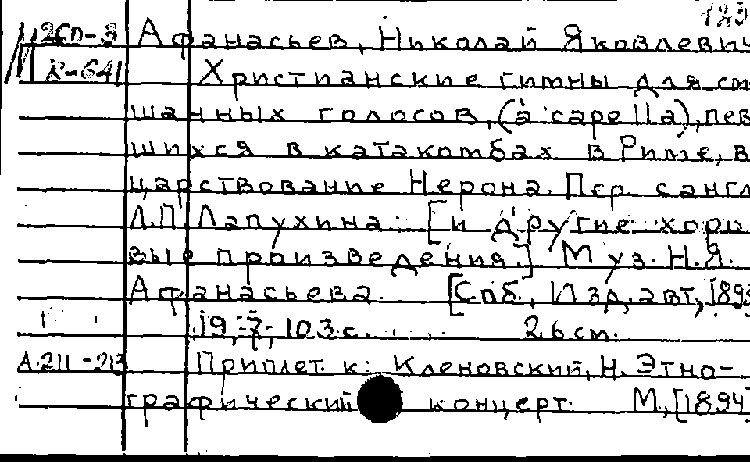 125
2Сп-3 Афанасьев, Николай Яковлевич
К-641 Христианские гимны для см
шанных голосов, (a capella), пев
шихся в катакомбах в Риме, в
царствование Нерона. Пер. с англ
Л.П. Лапухина. [и другие хоро
вые произведения.] Муз. Н.Я.
Афанасьева. [Спб., Изд. авт., 189
19, 7, 103 с. 26 см.
А.211-213 Приплет. к: Кленовский, Н. Этно-
графический концерт. М., [1894